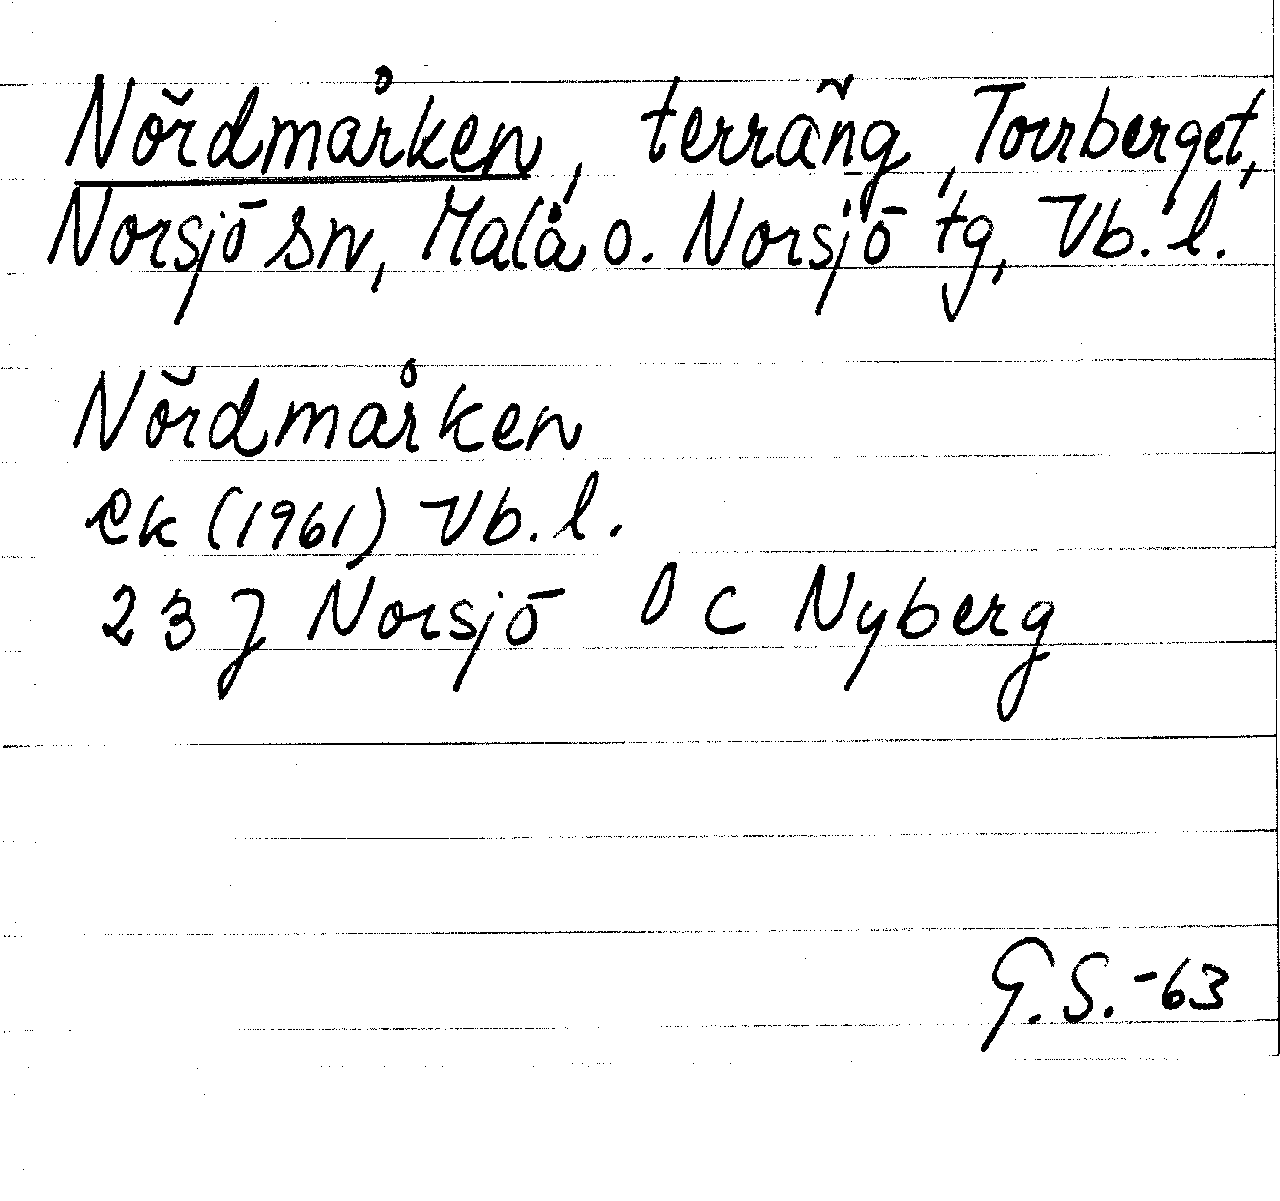 Nördmårken, terräng, Torrberget,
Norsjö sn, Malå o. Norsjö tg, Vb. l.
Nördmårken
ek (1961) Vb. l.
23 J Norsjö 0 c Nyberg
G.S.-63